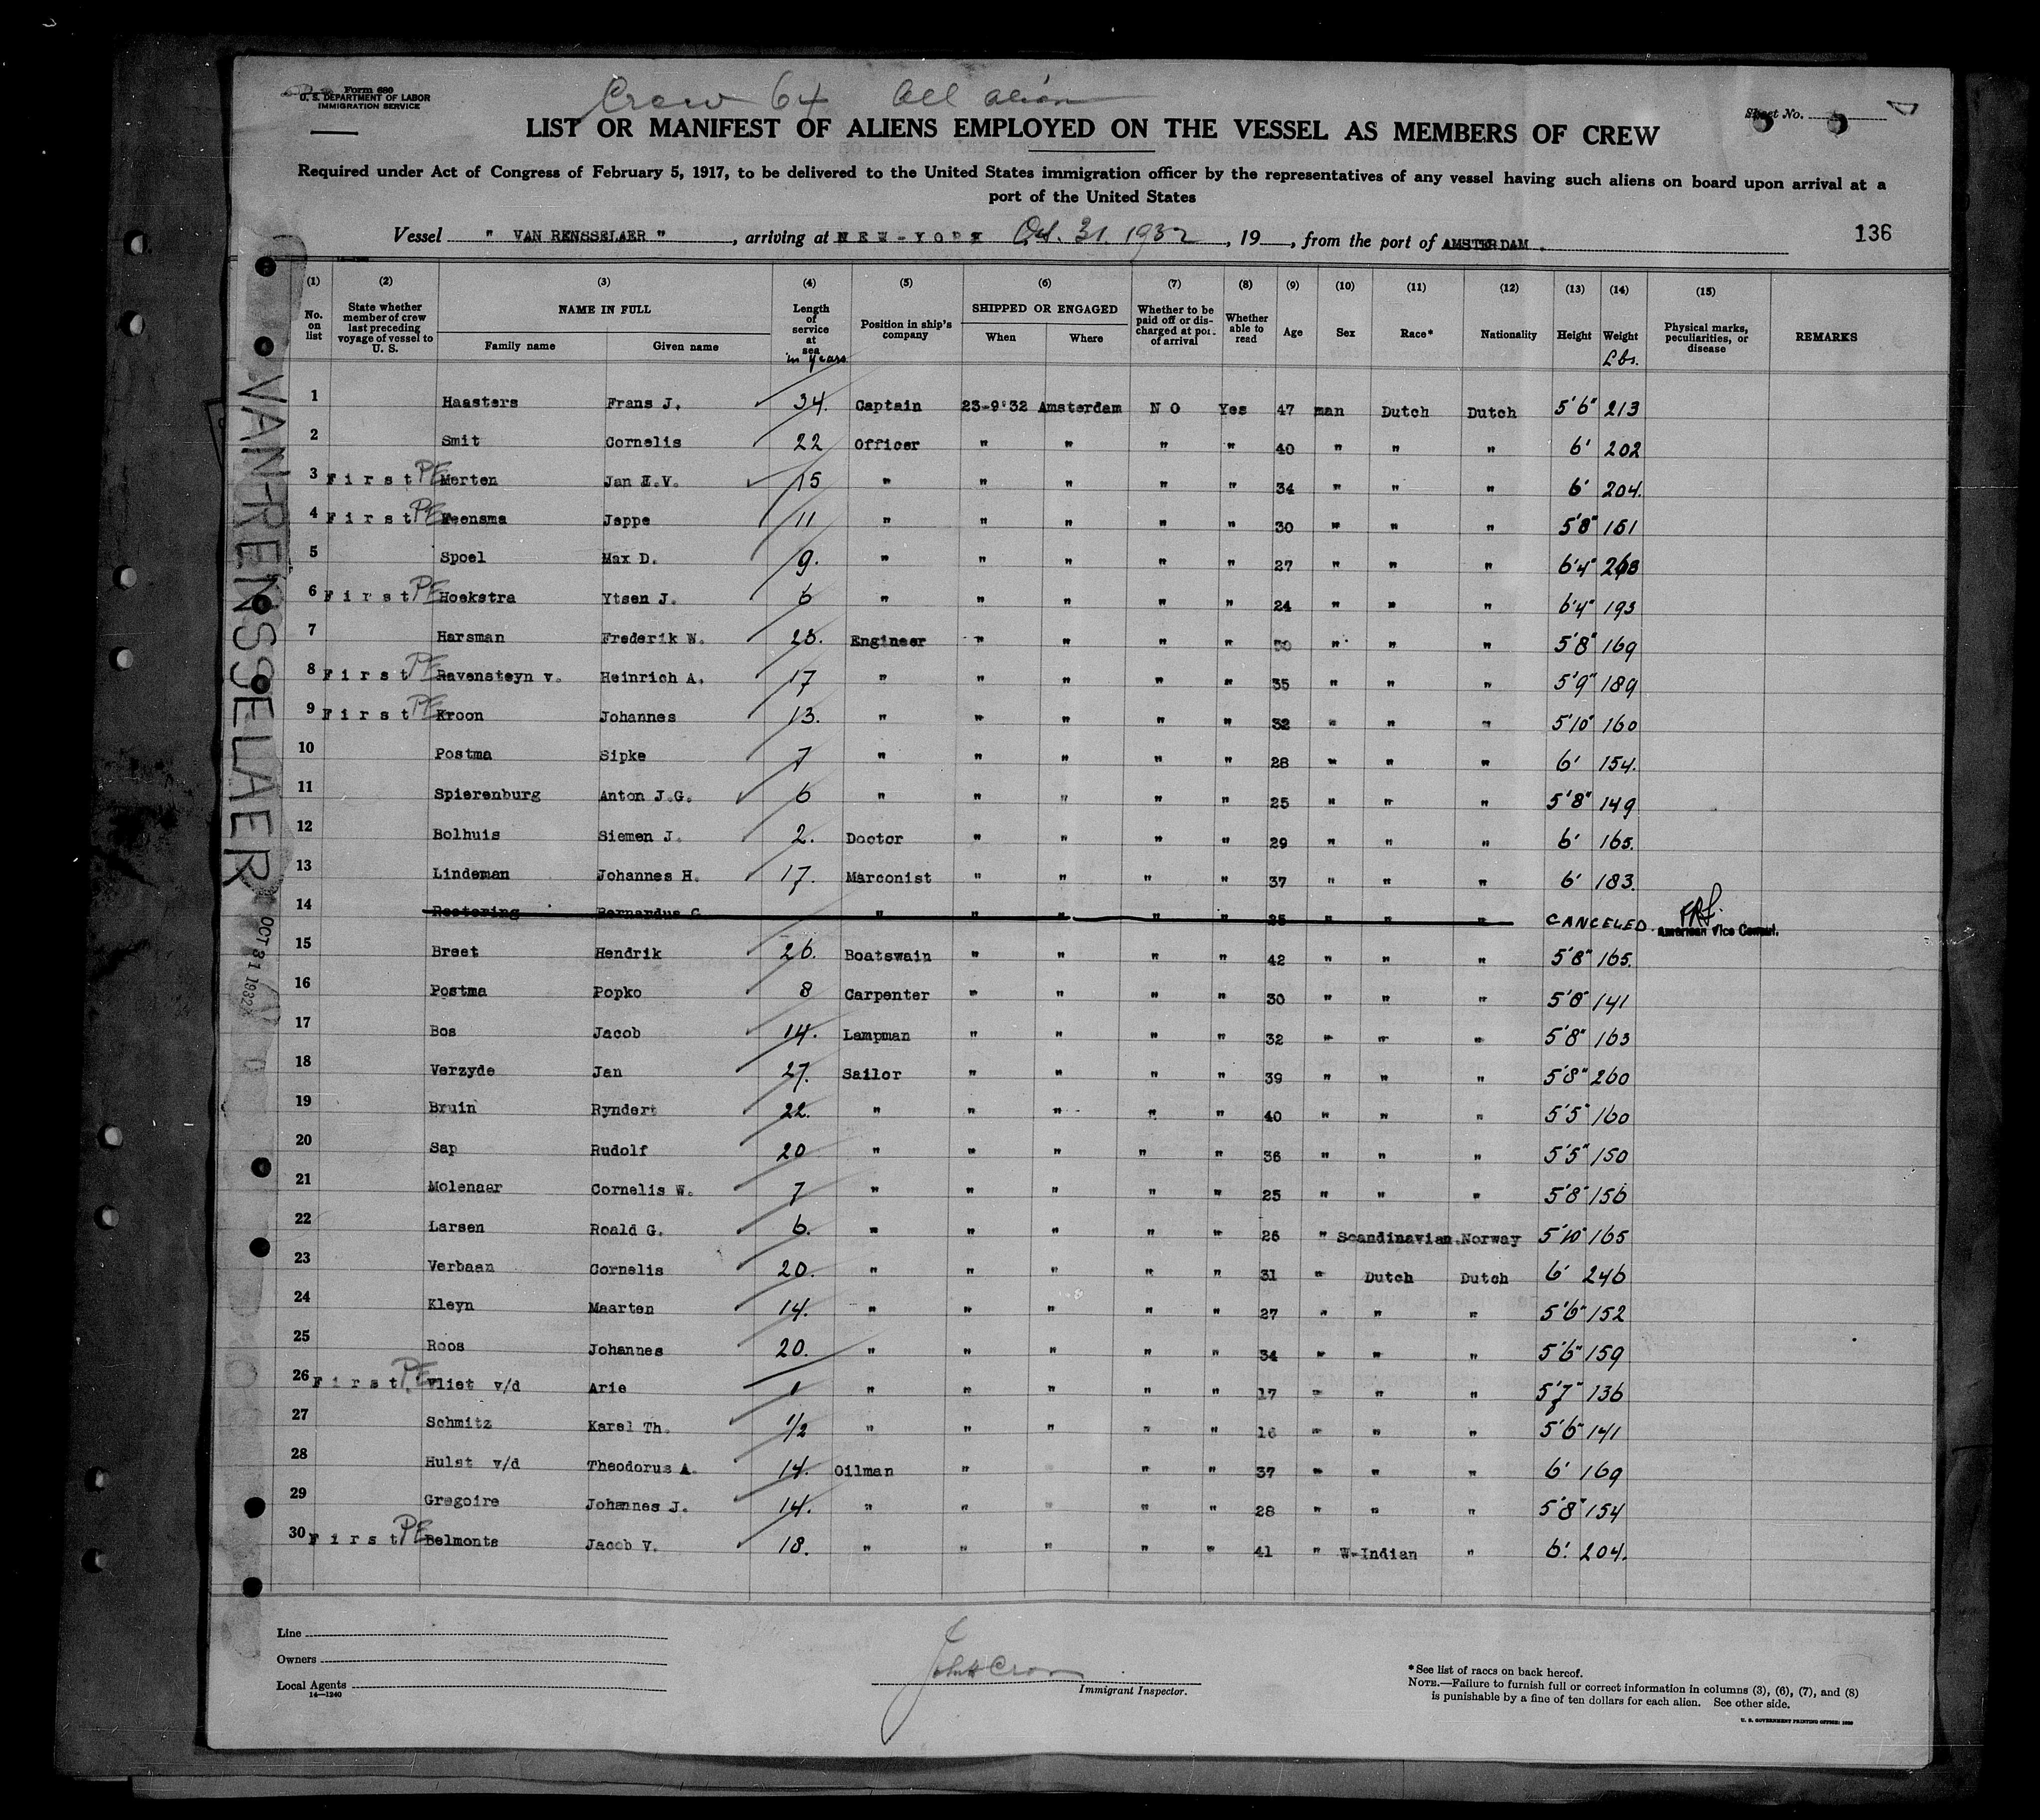 Form 680
U. S. DEPARTMENT OF LABOR
IMMIGRATION SERVICE
Crew 64 All alien
Sheet No.
LIST OR MANIFEST OF ALIENS EMPLOYED ON THE VESSEL AS MEMBERS OF CREW
Required under Act of Congress of February 5, 1917, to be delivered to the United States immigration officer by the representatives of any vessel having such aliens on board upon arrival at a
port of the United States
Vessel " VAN RENSSELAER " , arriving at NEW-YORK Oct. 31. 1932 , 19 , from the port of AMSTERDAM .
136
(1) (2) (3) (4) (5) (6) (7) (8) (9) (10) (11) (12) (13) (14) (15)
No. on list
State whether member of crew last preceding voyage of vessel to U. S.
NAME IN FULL
Family name Given name
Length of service at sea in years
Position in ship's company
SHIPPED OR ENGAGED
When Where
Whether to be paid off or discharged at port of arrival
Whether able to read
Age Sex Race* Nationality Height Weight Lbs.
Physical marks, peculiarities, or disease
REMARKS
1 Haasters Frans J. 34. Captain 23-9-'32 Amsterdam NO Yes 47 man Dutch Dutch 5'6" 213
2 Smit Cornelis 22 Officer " " " " 40 " " " 6' 202
3 First PE Merten Jan E.V. 15 " " " " " 34 " " " 6' 204.
4 First PE Feensma Jeppe 11 " " " " " 30 " " " 5'8" 161
5 Spoel Max D. 9. " " " " " 27 " " " 6'4" 268
6 First PE Hoekstra Ytsen J. 6 " " " " " 24 " " " 6'4" 193
7 Harsman Frederik W. 23. Engineer " " " " 50 " " " 5'8" 169
8 First PE Ravensteyn v. Heinrich A. 17 " " " " " 35 " " " 5'9" 189
9 First PE Kroon Johannes 13. " " " " " 32 " " " 5'10" 160
10 Postma Sipke 7 " " " " " 28 " " " 6' 154.
11 Spierenburg Anton J.G. 6 " " " " " 25 " " " 5'8" 149
12 Bolhuis Siemen J. 2. Doctor " " " " 29 " " " 6' 165.
13 Lindeman Johannes H. 17. Marconist " " " " 37 " " " 6' 183.
14 Bernardus C " " " " " 25 " " " CANCELED
American Vice Consul.
15 Breet Hendrik 26. Boatswain " " " " 42 " " " 5'8" 165.
16 Postma Popko 8 Carpenter " " " " 30 " " " 5'8" 141
17 Bos Jacob 14. Lampman " " " " 32 " " " 5'8" 163
18 Verzyde Jan 27. Sailor " " " " 39 " " " 5'8" 260
19 Bruin Ryndert 22. " " " " " 40 " " " 5'5" 160
20 Sap Rudolf 20 " " " " " 36 " " " 5'5" 150
21 Molenaar Cornelis W. 7 " " " " " 25 " " " 5'8" 156
22 Larsen Roald G. 6. " " " " " 26 " Scandinavian Norway 5'10" 165
23 Verbaan Cornelis 20. " " " " " 31 " Dutch Dutch 6' 246
24 Kleyn Maarten 14. " " " " " 27 " " " 5'6" 152
25 Roos Johannes 20. " " " " " 34 " " " 5'6" 159
26 First PE Vliet v/d Arie 1 " " " " " 17 " " " 5'7" 136
27 Schmitz Karel Th. 1/2 " " " " " 16 " " " 5'6" 141
28 Hulst v/d Theodorus A. 14. Oilman " " " " 37 " " " 6' 169
29 Gregoire Johannes J. 14. " " " " " 28 " " " 5'8" 154
30 First PE Belmonte Jacob V. 18. " " " " " 41 " W-Indian " 6' 204.
VAN-RENSSELAER
OCT 31 1932
Line
Owners
Local Agents
14—1240
Immigrant Inspector.
*See list of races on back hereof.
NOTE.—Failure to furnish full or correct information in columns (3), (6), (7), and (8)
is punishable by a fine of ten dollars for each alien. See other side.
U. S. GOVERNMENT PRINTING OFFICE: 1930